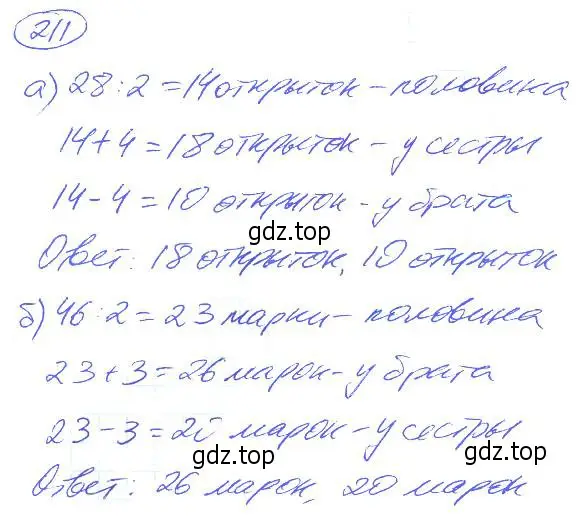 211
а) 28:2=14 открыток - половина
14+4=18 открыток - у сестры
14-4=10 открыток - у брата
gdz.top
Ответ: 18 открыток, 10 открыток
б) 46:2=23 марки - половина
23+3=26 марок - у брата
23-3=20 марок - у сестры
gdz.top
Ответ: 26 марок, 20 марок